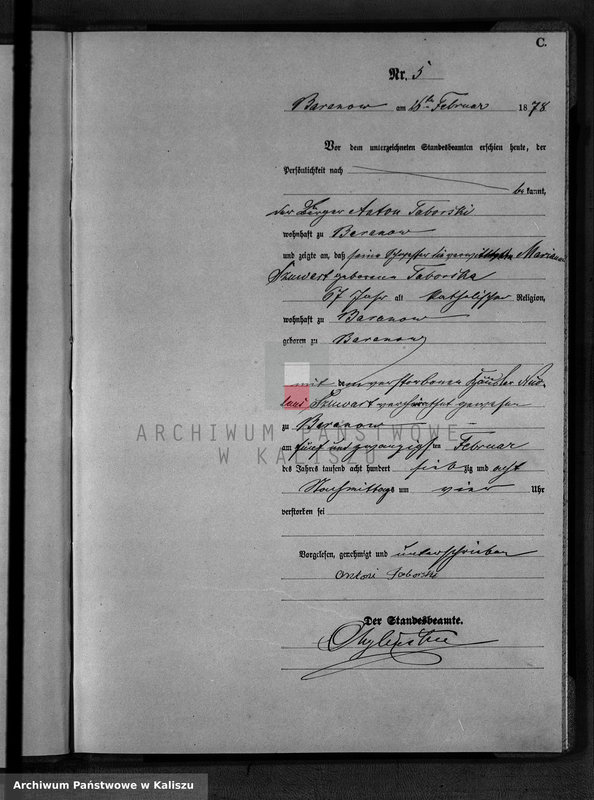 C.
Nr. 5
Baranow am Februar 1878
Vor dem unterzeichneten Standesbeamten erschien heute, der
Persönlichkeit nach
bekannt,
der Bürger Anton Taborski
wohnhaft zu Baranow
und zeigte an, daß seine Schwester die Marianna
Szuwart geborene Taborska
67 Jahr alt katholischer Religion,
wohnhaft zu Baranow
geboren zu Baranow
mit dem verstorbenen Händler
Szuwart verheirathet gewesen
zu Baranow
am fünf und zwanzigsten Februar
des Jahres tausend acht hundert siebzig und acht
Nachmittags um vier Uhr
verstorben sei
Vorgelesen, genehmigt und unterschrieben
Antoni Taborski
Der Standesbeamte.
ARCHIWUM PAŃSTWOWE
W KALISZU
Archiwum Państwowe w Kaliszu